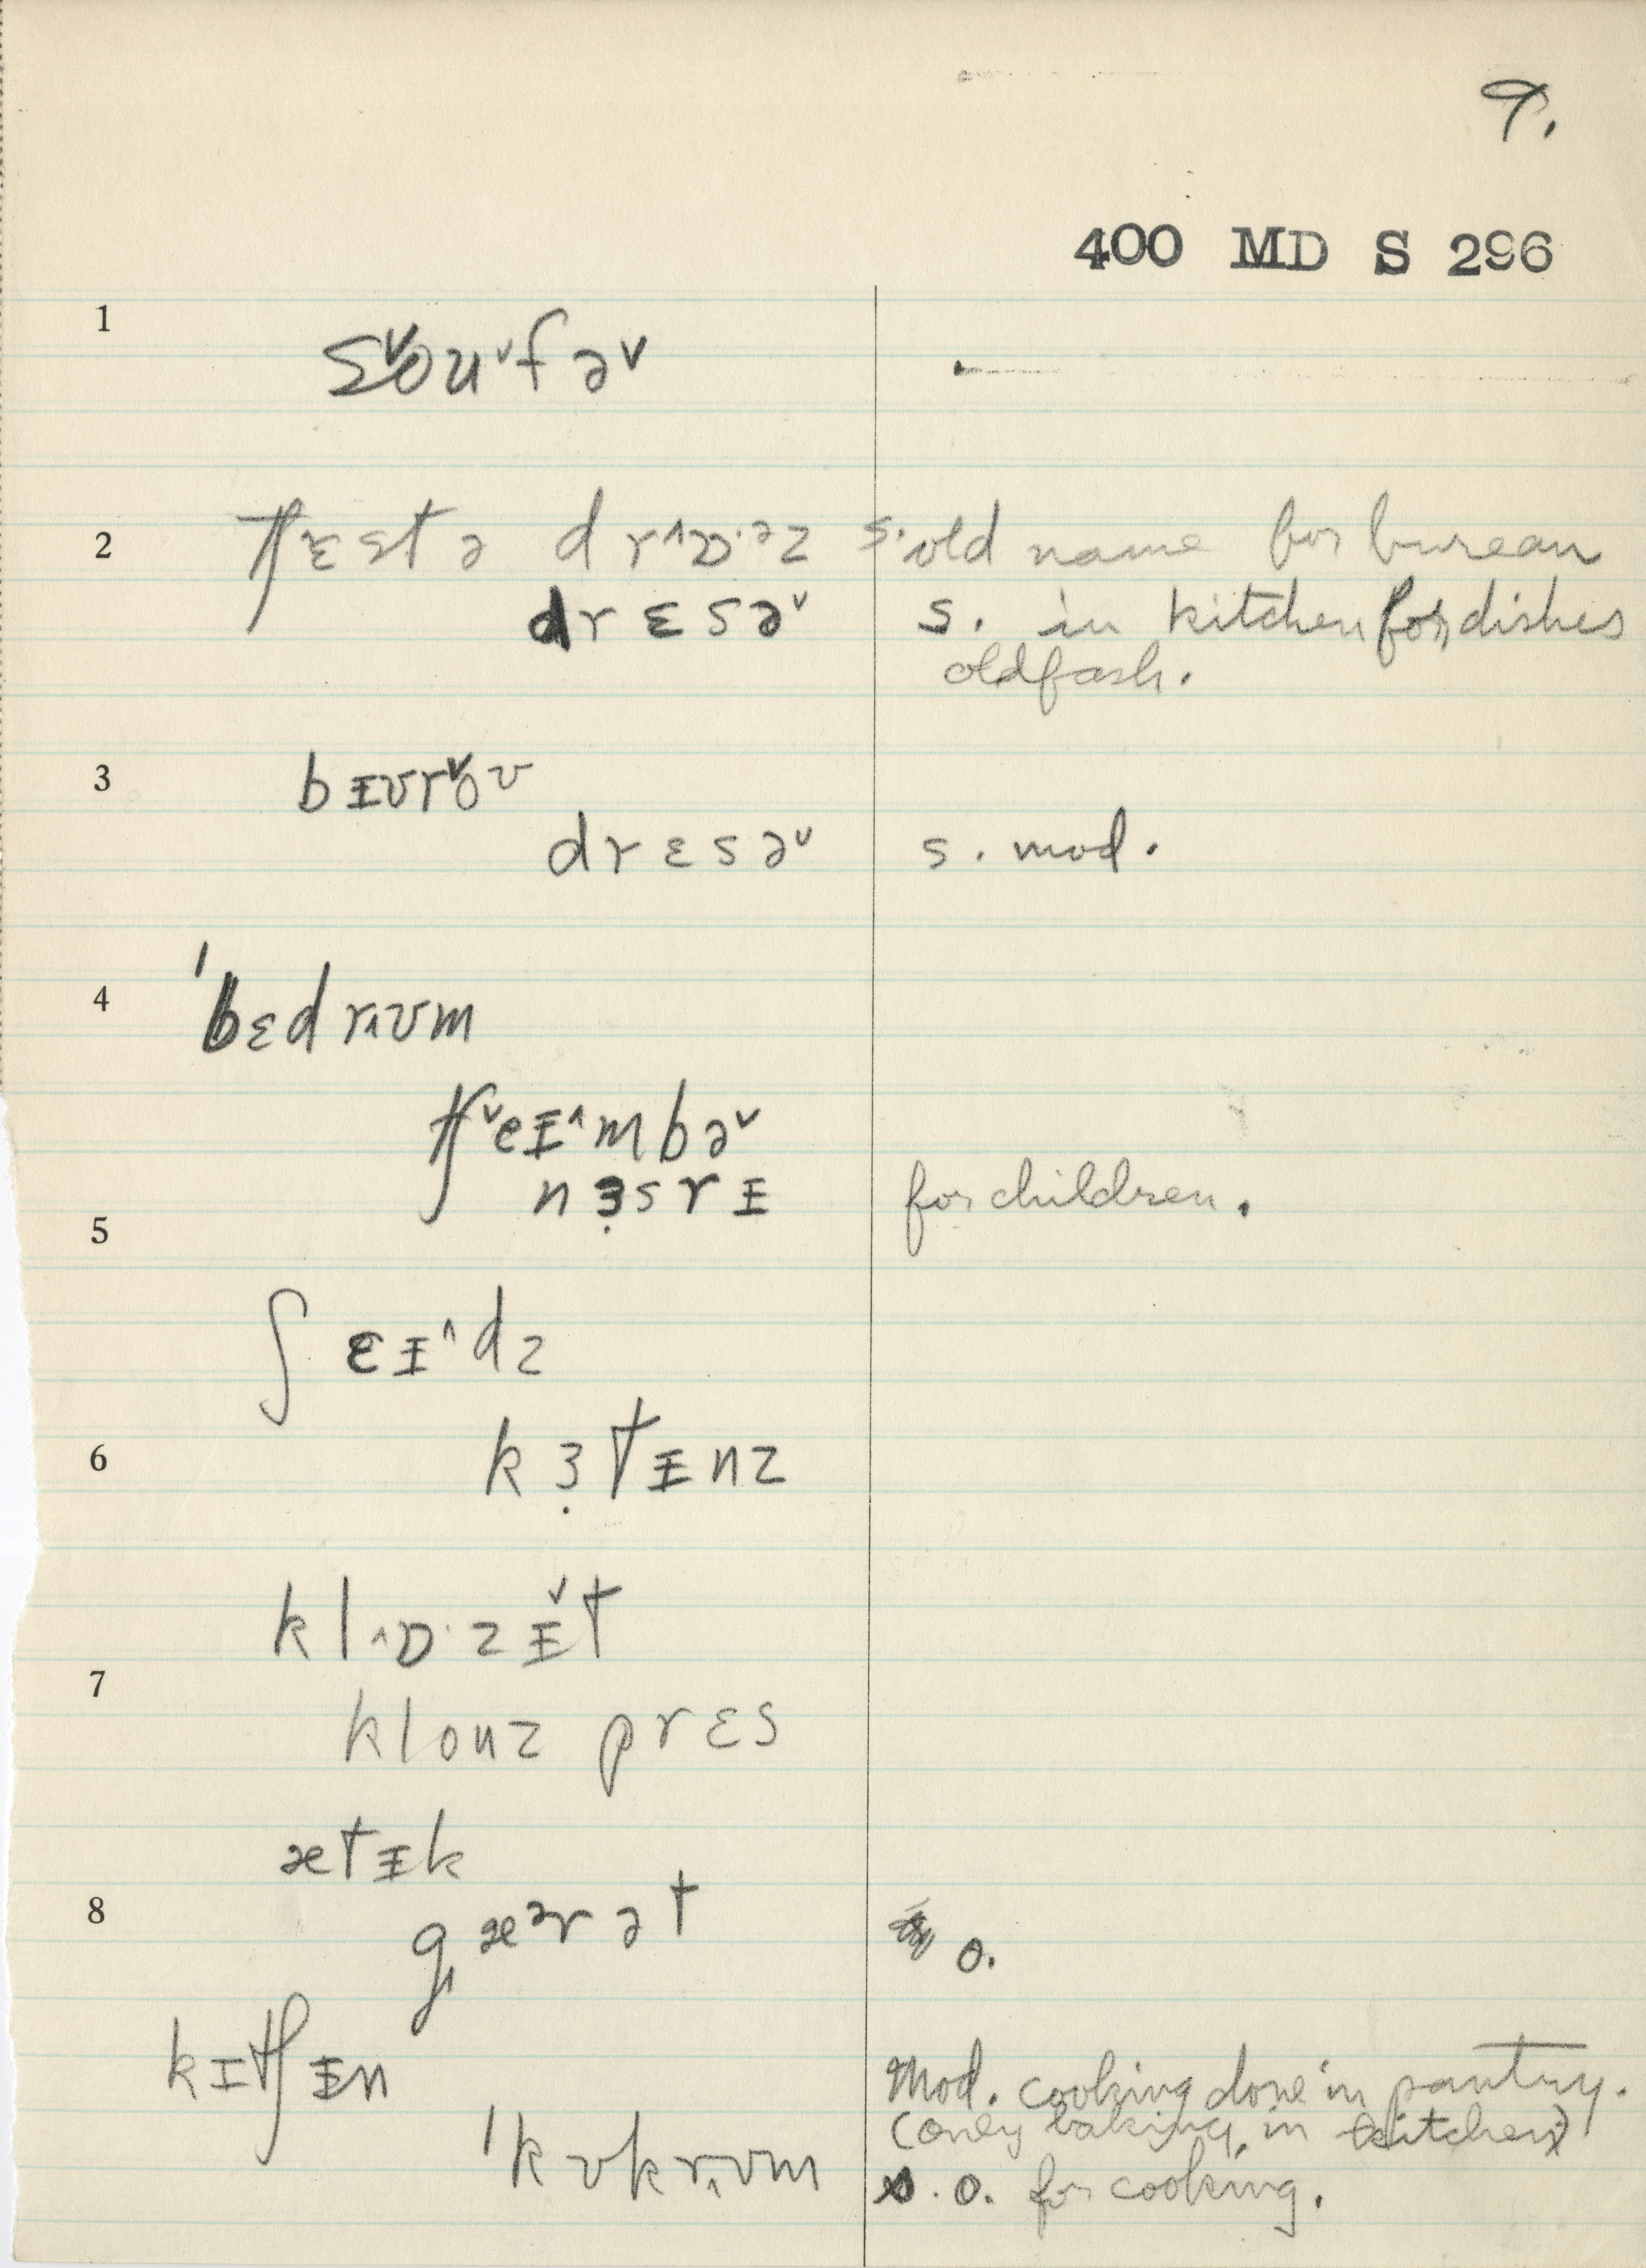 9.
400 MD S 296
1 s˅ou˅fə˅
2 tʃɛstə drˆɒ·ᵊz s. old name for bureau
drɛsə˅ s. in kitchen for dishes
oldfash.
3 bɪʊr˅oʊ
drɛsə˅ s. mod.
4 ˈbɛdrˆʊm
tʃ˅eɪˆmbə˅
nɜ̣srɪ for children.
5
ʃɛɪˆdz
6 kɜ̣tɪnz
klˆɒ·zɪ˅t
7
klouz prɛs
ætɪk
8 gæᵊrət o.
kɪtʃɪn Mod. cooking done in pantry.
(only baking in kitchen)
ˈkʊkrˆʊm s. o. for cooking.